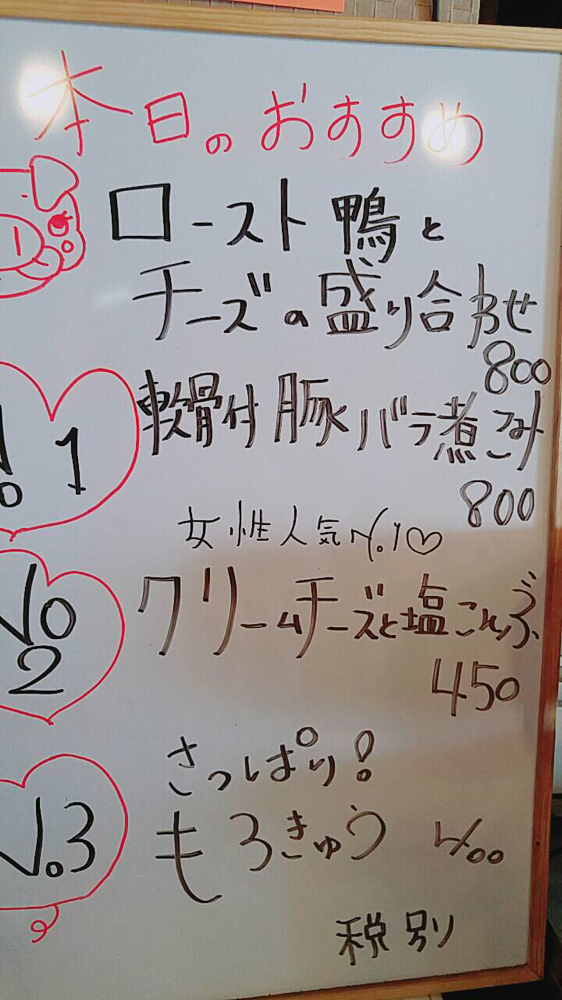 本日のおすすめ
ロースト鴨と
チーズの盛り合わせ
800
No. 1
軟骨付豚バラ煮こみ
800
女性人気No.1♡
No 2
クリームチーズと塩こんぶ
450
さっぱり!
No.3
もろきゅう 400
税別